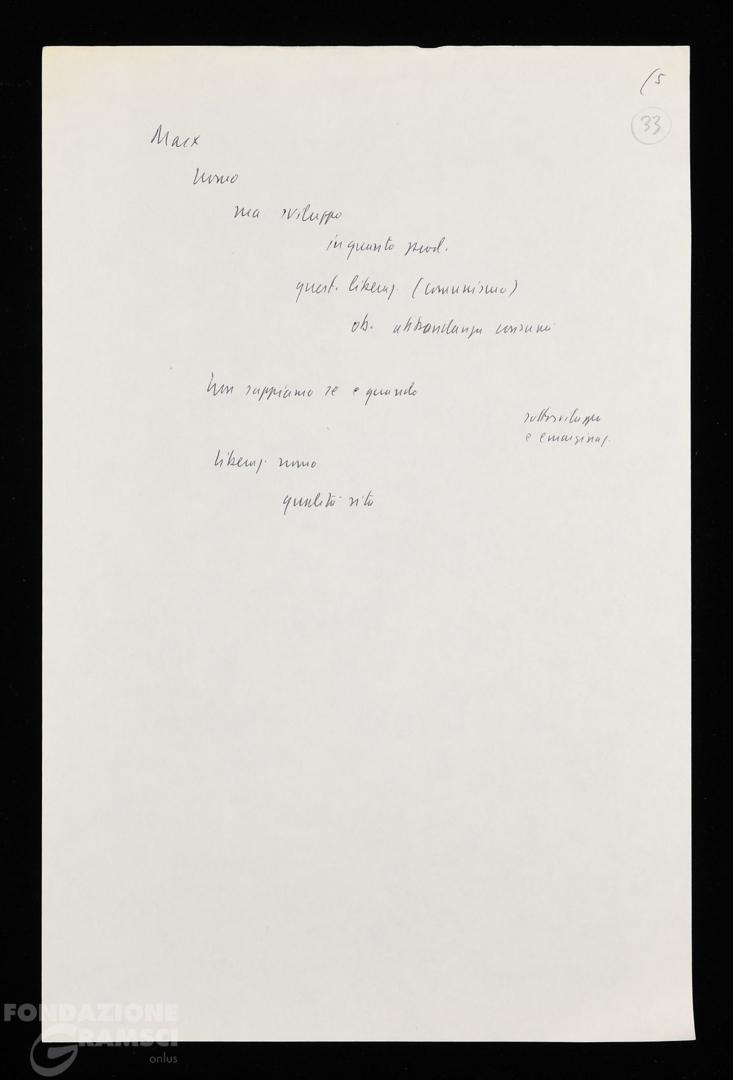 (5
33
Marx
uomo
ma sviluppo
in quanto prod.
quest. liberaz. (comunismo)
ob. abbondanza consumi
Non sappiamo se e quando
sottosviluppo
e emarginaz.
liberaz. uomo
qualità vita
FONDAZIONE
GRAMSCI
onlus